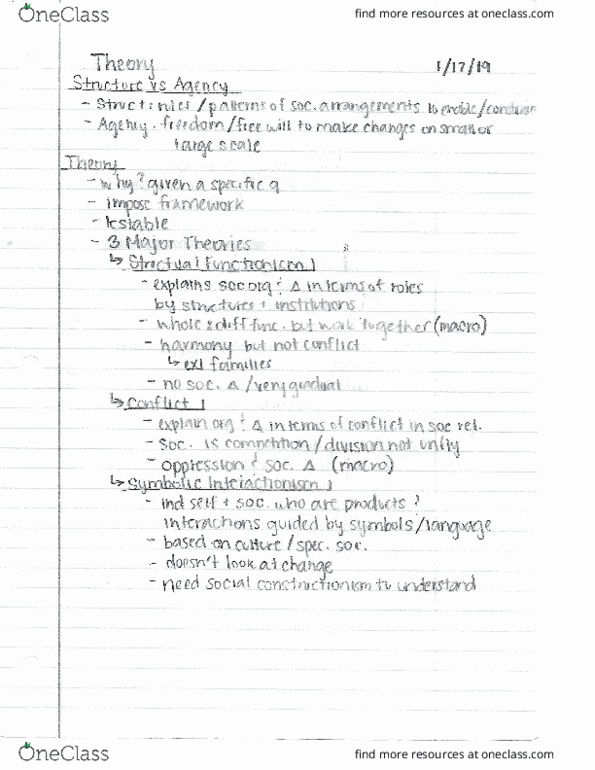 OneClass
find more resources at oneclass.com
Theory 1/17/19
Structure vs Agency
- Struct: rules/patterns of soc. arrangements to enable/constrain
- Agency: freedom/free will to make changes on small or
large scale
Theory
- why? given a specific q
- impose framework
- 3 Major Theories
↳ Structual Functionism
- explains soc org & Δ in terms of roles
by structures + institutions
- whole diff func. but work together (macro)
- harmony but not conflict
↳ ex/ families
- no soc. Δ /very gradual
↳ Conflict
- explain org & Δ in terms of conflict in soc rel.
- Soc. is competition/division not unity
- oppression & soc. Δ (macro)
↳ Symbolic Interactionism
- ind self + soc. who are products?
interactions guided by symbols/language
- based on culture/spec. soc.
- doesn't look at change
- need social constructionism to understand
OneClass
find more resources at oneclass.com